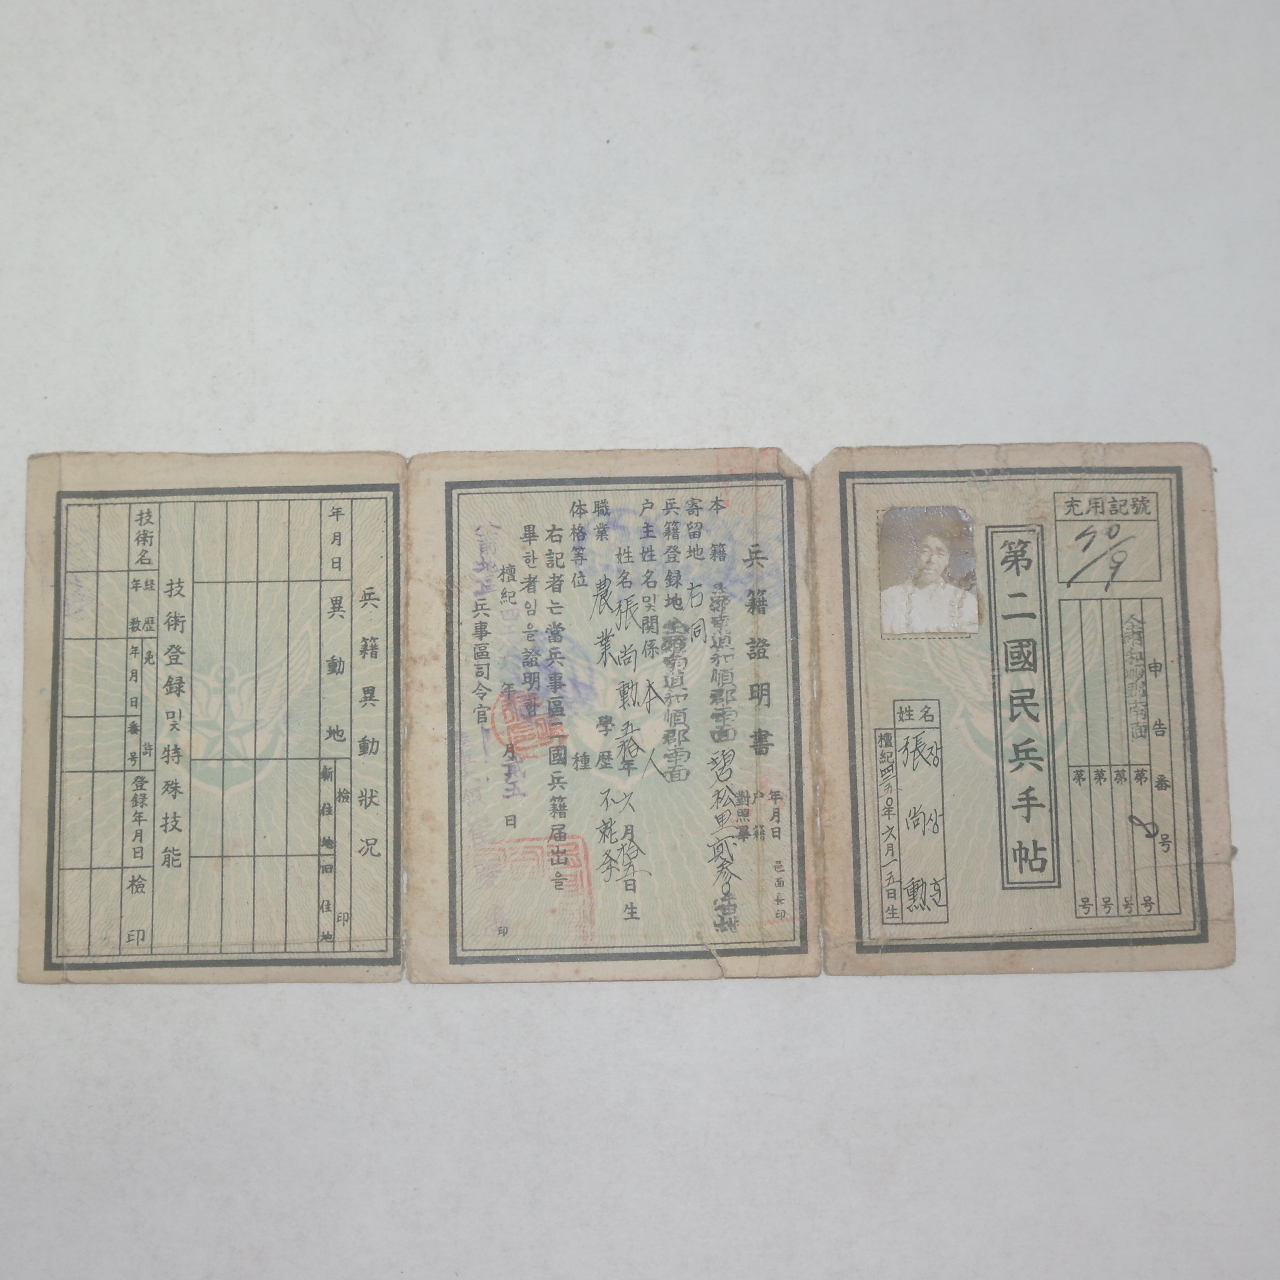 充用記號
40/9
申告番号
第 8 号
第 号
第 号
第 号
第二國民兵手帖
姓名
張 장
尚 상
勲 훈
檀紀四二五〇年六月一五日生
兵籍證明書
年月日
戸籍
對照畢
邑面長印
本籍 全羅南道和順郡南面碧松里
寄留地 右同
兵籍登録地 全羅南道和順郡南面
户主姓名및關係 本人
姓名 張尚勲 五拾年六月拾五日生
職業 農業 學歴 不就学
体格等位 種
右記者는當兵事區二國兵籍届出을
畢한者임을證明함
檀紀四 年 月 日
兵事區司令官
印
兵籍異動狀况
年月日
異動地
新住地
旧住地
檢印
技術登録및特殊技能
技術名
経歷年数
免許
年月日
番号
登録年月日
檢印